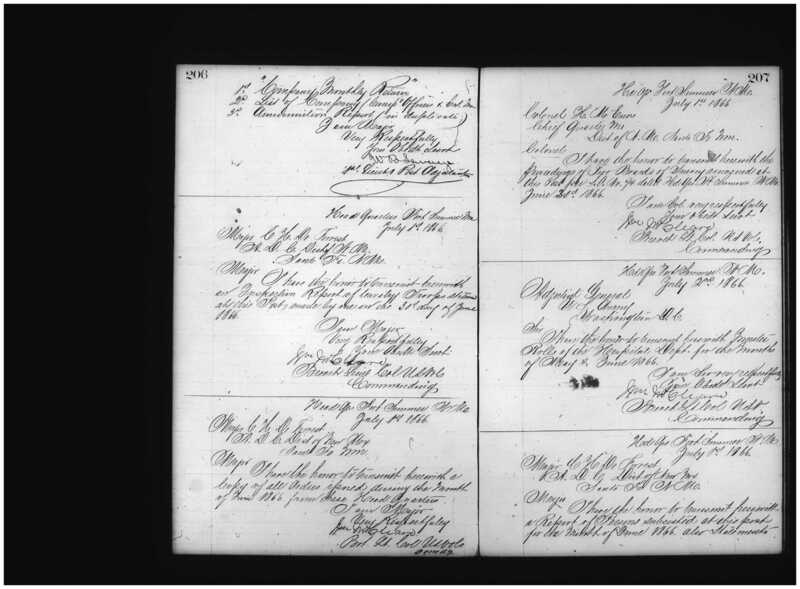 206
1st "Company Monthly Return"
2d List of Company
3d Ammunition Report (in duplicate)
I am Major
Very Respectfully
Your Obedt Servt
1st Lieut & Post Adjutant
Head Quarters Fort Sumner
July 1st 1866
Major C. H. De Forrest
A. D. C. Dist of N. Mex
Santa Fe N. Mex
Major
I have the honor to transmit herewith
an Inspection Report of Cavalry
at this Post, made by me on the 30th day of June
1866
I am Major
Very Respectfully
Your Obedt Servt
Brevet Lieut Col US Vols
Commanding
Head Qrs Fort Sumner N. Mex
July 1st 1866
Major C. H. De Forrest
A. D. C. Dist of New Mex
Santa Fe NM.
Major
I have the honor to transmit herewith a
Copy of all Orders issued during the Month
of June 1866 from these Head Quarters
I am Major
Very Respectfully
Bvt. Lt. Col US Vols
Comdg
207
Hd Qrs Fort Sumner N. Mex.
July 1st 1866
Colonel
Chief Quarter Mr
Dist of N. Mex. Santa Fe NM.
Colonel
I have the honor to transmit herewith the
Proceedings of Board of Survey convened at
this Post Fort Sumner N. Mex
June 1866
I am Col. very respectfully
Your Obedt Servt
Brevet Lt. Col. US Vols.
Commanding
Hd Qrs Fort Sumner N. Mex.
July 2nd 1866
Adjutant General
U.S. Army
Washington D. C.
Sir
I have the honor to transmit herewith Muster
Rolls of the Hospital Dept. for the months
of May & June 1866.
I am Sir very respectfully
Your Obedt Servt
Brevet Lt Col US Vols
Commanding
Hd Qrs Fort Sumner N. Mex
July 1st 1866
Major C. H. De Forrest
A. D. C. Dist of New Mex
Santa Fe N. Mex.
Major
I have the honor to transmit herewith
a Report of Persons subsisted at this post
for the Month of June 1866. also Statements